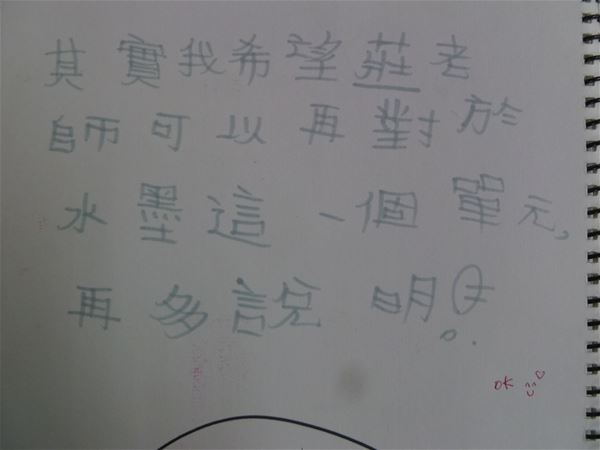 其實我希望莊老
師可以再對於
水墨這一個單元,
再多說明。
OK